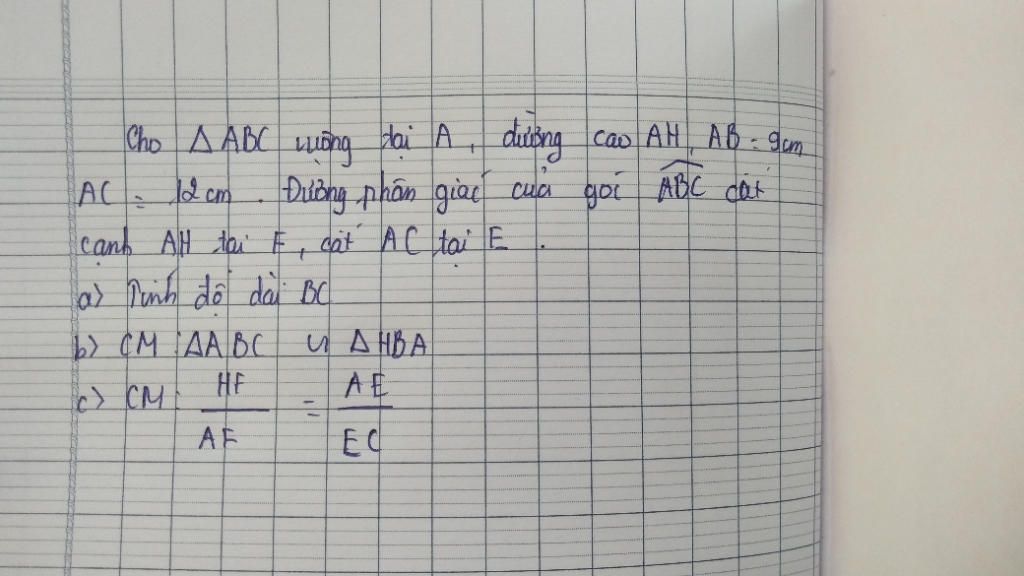 Cho △ABC vuông tại A, đường cao AH, AB = 9cm
AC = 12cm. Đường phân giác của goí ABC cắt
cạnh AH tại F, cắt AC tại E.
a) Tính độ dài BC
b) CM: △ABC ∽ △HBA
c) CM: HF/AF = AE/EC